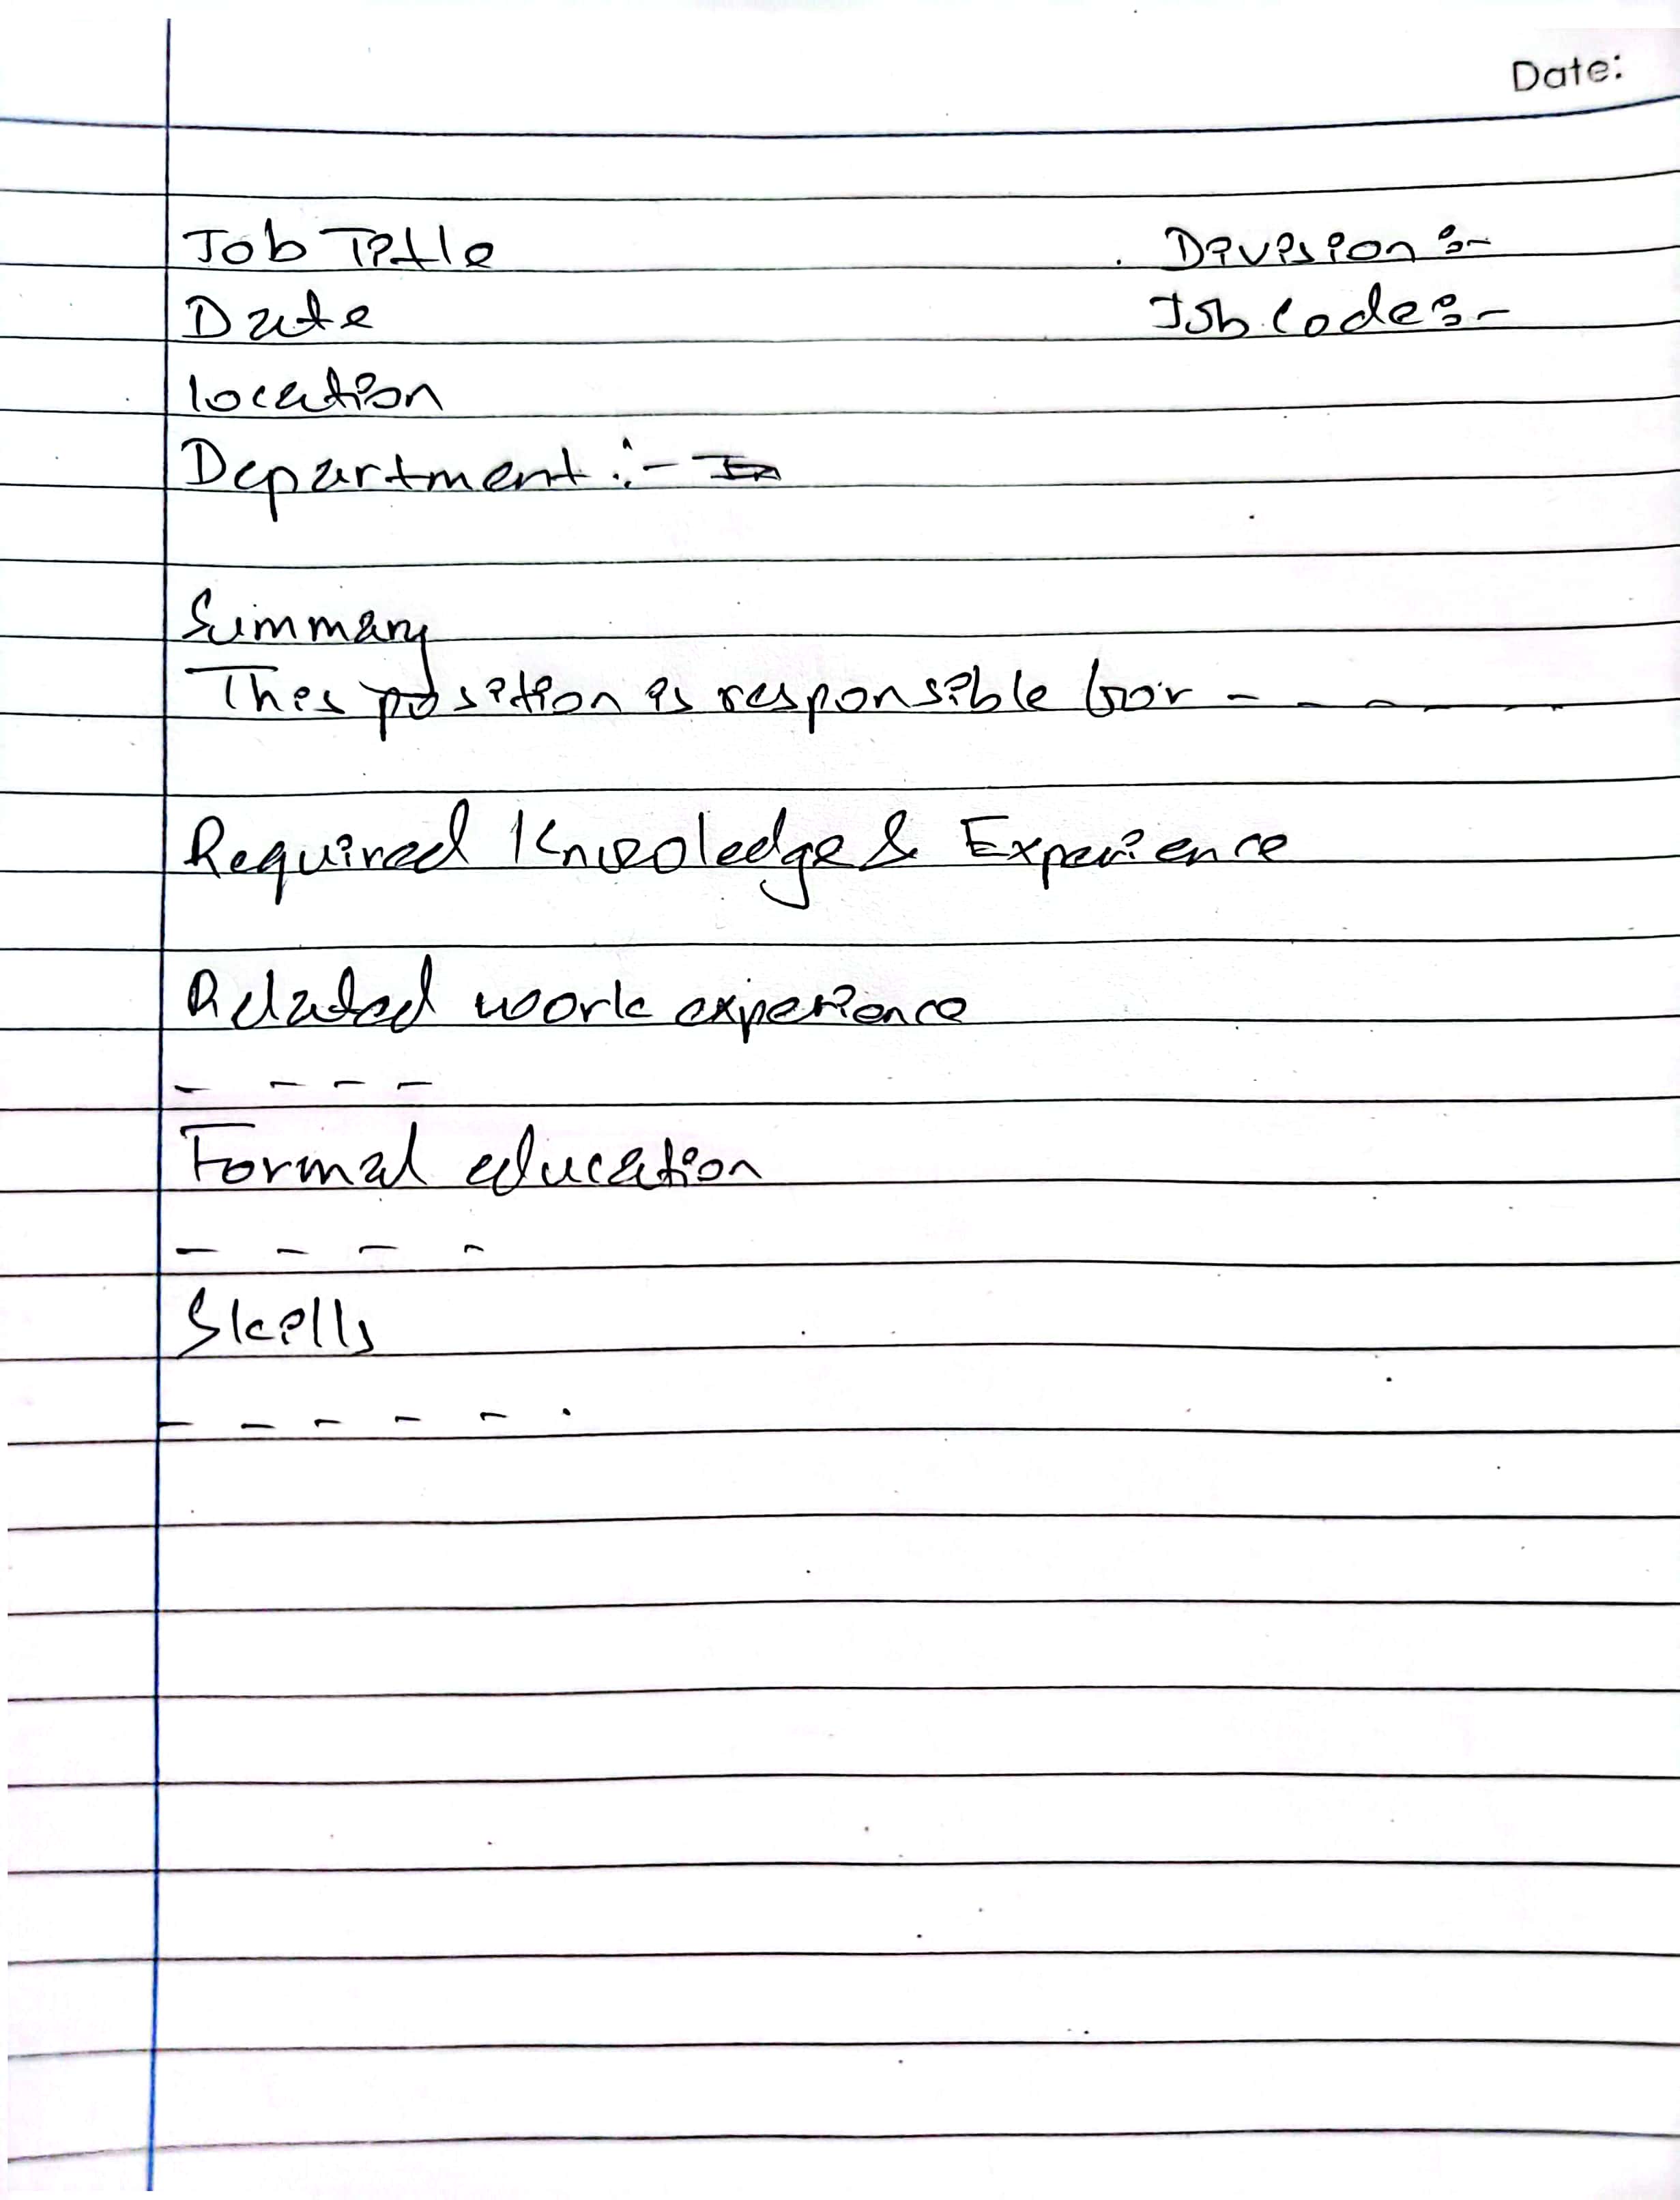 Date:
Job Title Division :-
Date Job Code :-
location
Department :-
Summary
This position is responsible for - - - - - -
Required Knowledge & Experience
Related work experience
- - - -
Formal education
- - - -
Skills
- - - - - .